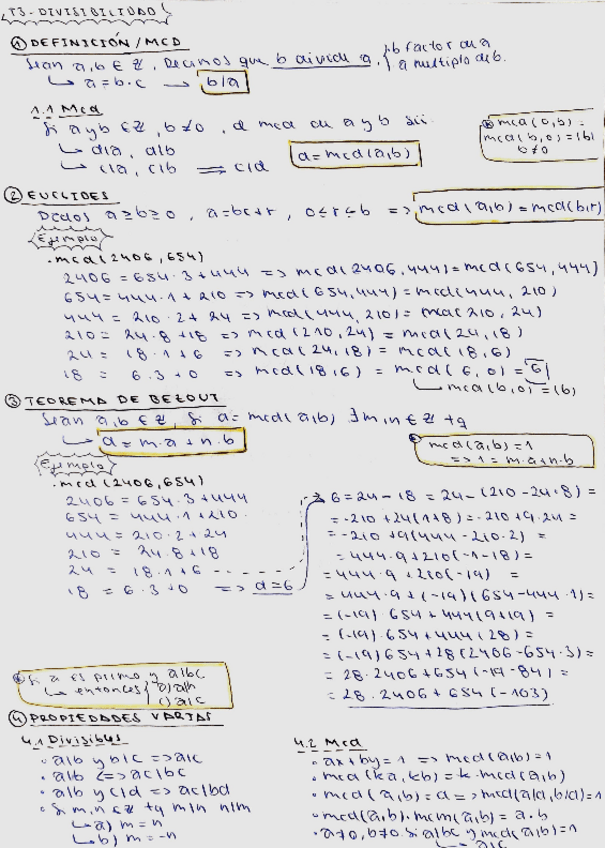 T3-DIVISIBILIDAD
① DEFINICIÓN/MCD
Sean a,b ∈ ℤ, Decimos que b divide a, { b factor de a
a múltiplo de b.
↳ a = b·c → b|a
1.1 Mcd
Si a y b ∈ ℤ, b≠0, d mcd de a y b sii.
↳ d|a, d|b
↳ c|a, c|b ⟹ c|d
d = mcd(a,b)
mcd(0,b) =
mcd(b,0) = |b|
b≠0
② EUCLIDES
Dados a ≥ b ≥ 0, a = bc+r, 0 ≤ r ≤ b => mcd(a,b) = mcd(b,r)
Ejemplo
· mcd(2406,654)
2406 = 654·3+444 => mcd(2406,444) = mcd(654,444)
654 = 444·1+210 => mcd(654,444) = mcd(444,210)
444 = 210·2+24 => mcd(444,210) = mcd(210,24)
210 = 24·8+18 => mcd(210,24) = mcd(24,18)
24 = 18·1+6 => mcd(24,18) = mcd(18,6)
18 = 6·3+0 => mcd(18,6) = mcd(6,0) = 6
↳ mcd(b,0) = |b|
③ TEOREMA DE BEZOUT
Sean a,b ∈ ℤ, si d = mcd(a,b) ∃ m,n ∈ ℤ tq
↳ d = m·a + n·b
mcd(a,b) = 1
=> 1 = m·a+n·b
Ejemplo
· mcd(2406,654)
2406 = 654·3+444
654 = 444·1+210
444 = 210·2+24
210 = 24·8+18
24 = 18·1+6
18 = 6·3+0 => d=6
6 = 24-18 = 24-(210-24·8) =
= -210+24(1+8) = -210+9·24 =
= -210+9(444-210·2) =
= 444·9+210(-1-18) =
= 444·9+210(-19) =
= 444·9+(-19)(654-444·1) =
= (-19)·654+444(9+19) =
= (-19)·654+444(28) =
= (-19)654+28(2406-654·3) =
= 28·2406+654(-19-84) =
= 28·2406+654(-103)
Si a es primo y a|bc
↳ entonces { a|b
a|c
④ PROPIEDADES VARIAS
4.1 Divisibles
· a|b y b|c => a|c
· a|b <=> ac|bc
· a|b y c|d => ac|bd
· Si m,n ∈ ℤ tq m|n n|m
↳ a) m = n
↳ b) m = -n
4.2 Mcd
· ax+by = 1 => mcd(a,b) = 1
· mcd(ka,kb) = k·mcd(a,b)
· mcd(a,b) = d => mcd(a/d,b/d) = 1
· mcd(a,b)·mcm(a,b) = a·b
· a≠0, b≠0. Si a|bc y mcd(a,b)=1
↳ a|c